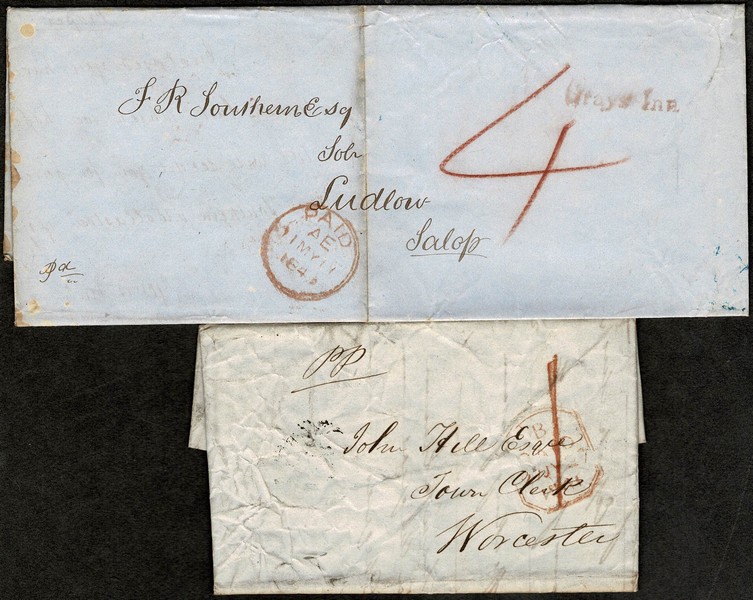 F R Southern Esq
Solr
Ludlow
Salop
4
Grays Inn
PAID
AE
MY
184
pd
pp
1
B
John Hill Esqre
Town Clerk
Worcester